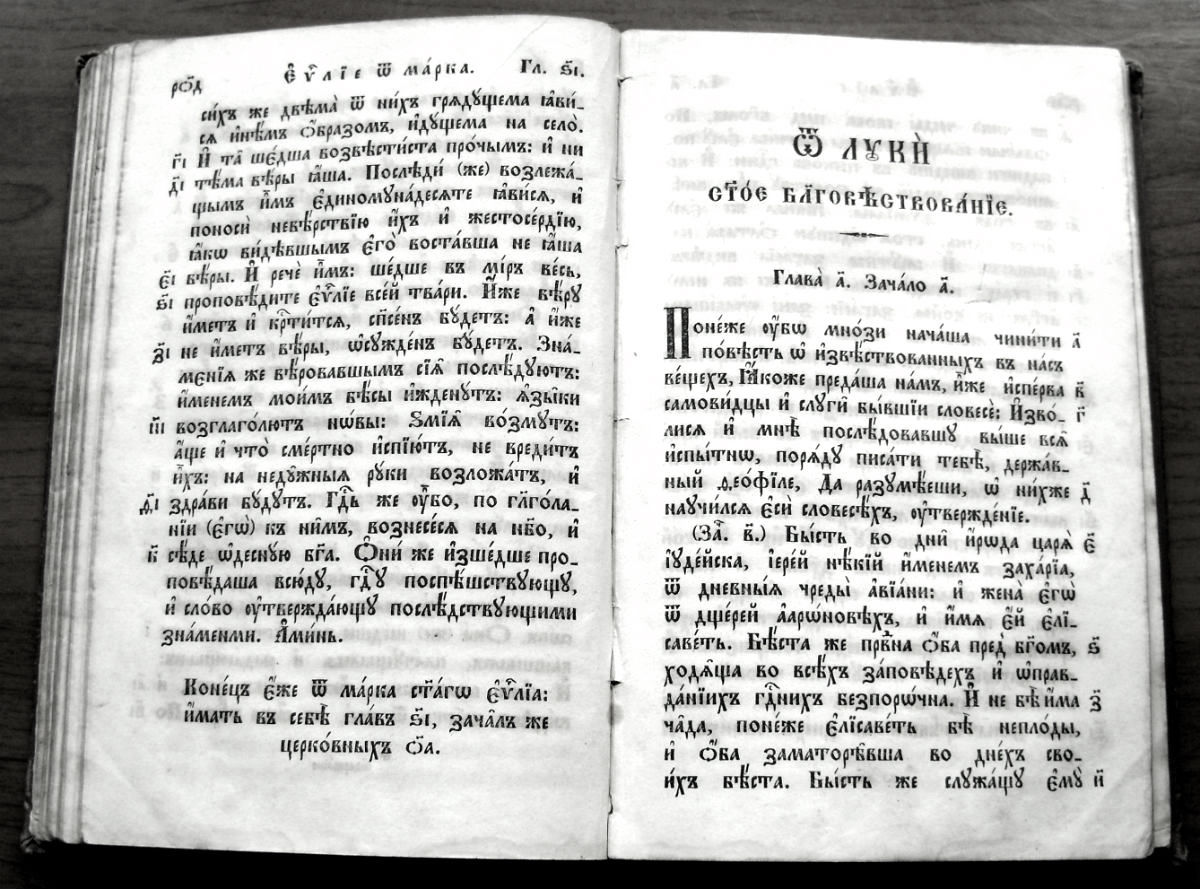 ро҃д Є҆ѵⷢ҇лїе ѿ ма́рка. Гл. ѕ҃і.
си́хъ же двѣма̀ ѿ ни́хъ грѧдꙋщема ꙗ҆ви-
сѧ и҆нѣ́мъ ѻ҆́бразомъ, и҆дꙋщема на село̀.
г҃і И҆ та̑ ше́дша возвѣсти́ста про́чымъ: и҆ ни
д҃і тѣ́ма вѣ́ры ꙗ҆́ша. Послѣди́ (же) возлежа́-
щымъ и҆̀мъ є҆диномꙋна́десѧте ꙗ҆ви́сѧ, и҆
поносѝ невѣ́рствїю и҆́хъ и҆ жестосе́рдїю,
ꙗ҆́кѡ ви́дѣвшымъ є҆го̀ воста́вша не ꙗ҆́ша
є҃і вѣ́ры. И҆ речѐ и҆̀мъ: ше́дше въ мі́ръ ве́сь,
ѕ҃і проповѣ́дите є҆ѵⷢ҇лїе все́й тва́ри. И҆́же вѣ́рꙋ
и҆́метъ и҆ крⷭ҇ти́тсѧ, сп҃се́нъ бꙋ́детъ: а҆ и҆́же
з҃і не и҆́метъ вѣ́ры, ѡ҆сꙋжде́нъ бꙋ́детъ. Зна́-
мєнїѧ же вѣ́ровавшымъ сїѧ̑ послѣ́дꙋютъ:
и҆́менемъ мои́мъ бѣ́сы и҆жденꙋ́тъ: ѧ҆зы́ки
и҃і возглаго́лютъ нѡ́вы: Ѕмїѧ̑ во́змꙋтъ:
а҆́ще и҆ что̀ сме́ртно и҆спїю́тъ, не вреди́тъ
и҆́хъ: на недꙋ̑жныѧ рꙋ́ки возложа́тъ, и҆
ѳ҃і здра́ви бꙋ́дꙋтъ. Гдⷭ҇ь же ᲂу҆̀бо, по гл҃го́ла-
нїи (є҆гѡ̀) къ ни̑мъ, вознесе́сѧ на нб҃о, и҆
к҃ сѣ́де ѡ҆деснꙋ́ю бг҃а. Ѻ҆ни́ же и҆зше́дше про-
повѣ́даша всю́дꙋ, гдⷭ҇ꙋ поспѣ́шствꙋющꙋ,
и҆ сло́во ᲂу҆твержда́ющꙋ послѣ́дствꙋющими
зна́менми. А҆ми́нь.
Коне́цъ є҆́же ѿ ма́рка ст҃а́гѡ є҆ѵⷢ҇лїа:
и҆́мать въ себѣ̀ гла́въ ѕ҃і, зача́лъ же
церко́вныхъ ѻ҃а.
Ѿ лꙋкѝ
ст҃о́е бл҃говѣствова́нїе.
Глава̀ а҃. Зача́ло а҃.
Поне́же ᲂу҆́бѡ мно́зи нача́ша чини́ти а҃
по́вѣсть ѡ҆ и҆звѣ́ствованныхъ въ на́съ
ве́щехъ, Ꙗ҆́коже преда́ша на́мъ, и҆̀же и҆спе́рва в҃
самови́дцы и҆ слꙋги̑ бы́вшїи словесѐ: И҆зво́- г҃
лисѧ и҆ мнѣ̀ послѣ́довавшꙋ вы́ше всѧ̑
и҆спы́тнѡ, порѧ́дꙋ писа́ти тебѣ̀, держа́в-
ный ѳео́фїле, Да разꙋмѣ́еши, ѡ҆ ни́хже д҃
наꙋчи́лсѧ є҆сѝ словесѣ́хъ, ᲂу҆твержде́нїе.
(За҃. в҃.) Бы́сть во днѝ и҆́рѡда царѧ̀ є҃
і҆ꙋде́йска, і҆ере́й нѣ́кїй и҆́менемъ заха́рїа,
ѿ дне́вныѧ чреды̀ а҆вїа́ни: и҆ жена̀ є҆гѡ̀
ѿ дще́рей а҆арѡ́новѣхъ, и҆ и҆́мѧ є҆́й є҆лї-
саве́ть. Бѣ́ста же прⷣвна ѻ҆́ба пред̾ бг҃омъ, ѕ҃
ходѧ̑ща во всѣ́хъ за́повѣдехъ и҆ ѡ҆прав-
да́нїихъ гдⷭ҇нихъ безпорѡ́чна. И҆ не бѣ̀ и҆́ма з҃
ча̑да, поне́же є҆лїсаве́ть бѣ̀ непло́ды,
и҆ ѻ҆́ба заматорѣ̑вша во дне́хъ сво-
и́хъ бѣ́ста. Бы́сть же слꙋжа́щꙋ є҆мꙋ̀ и҃